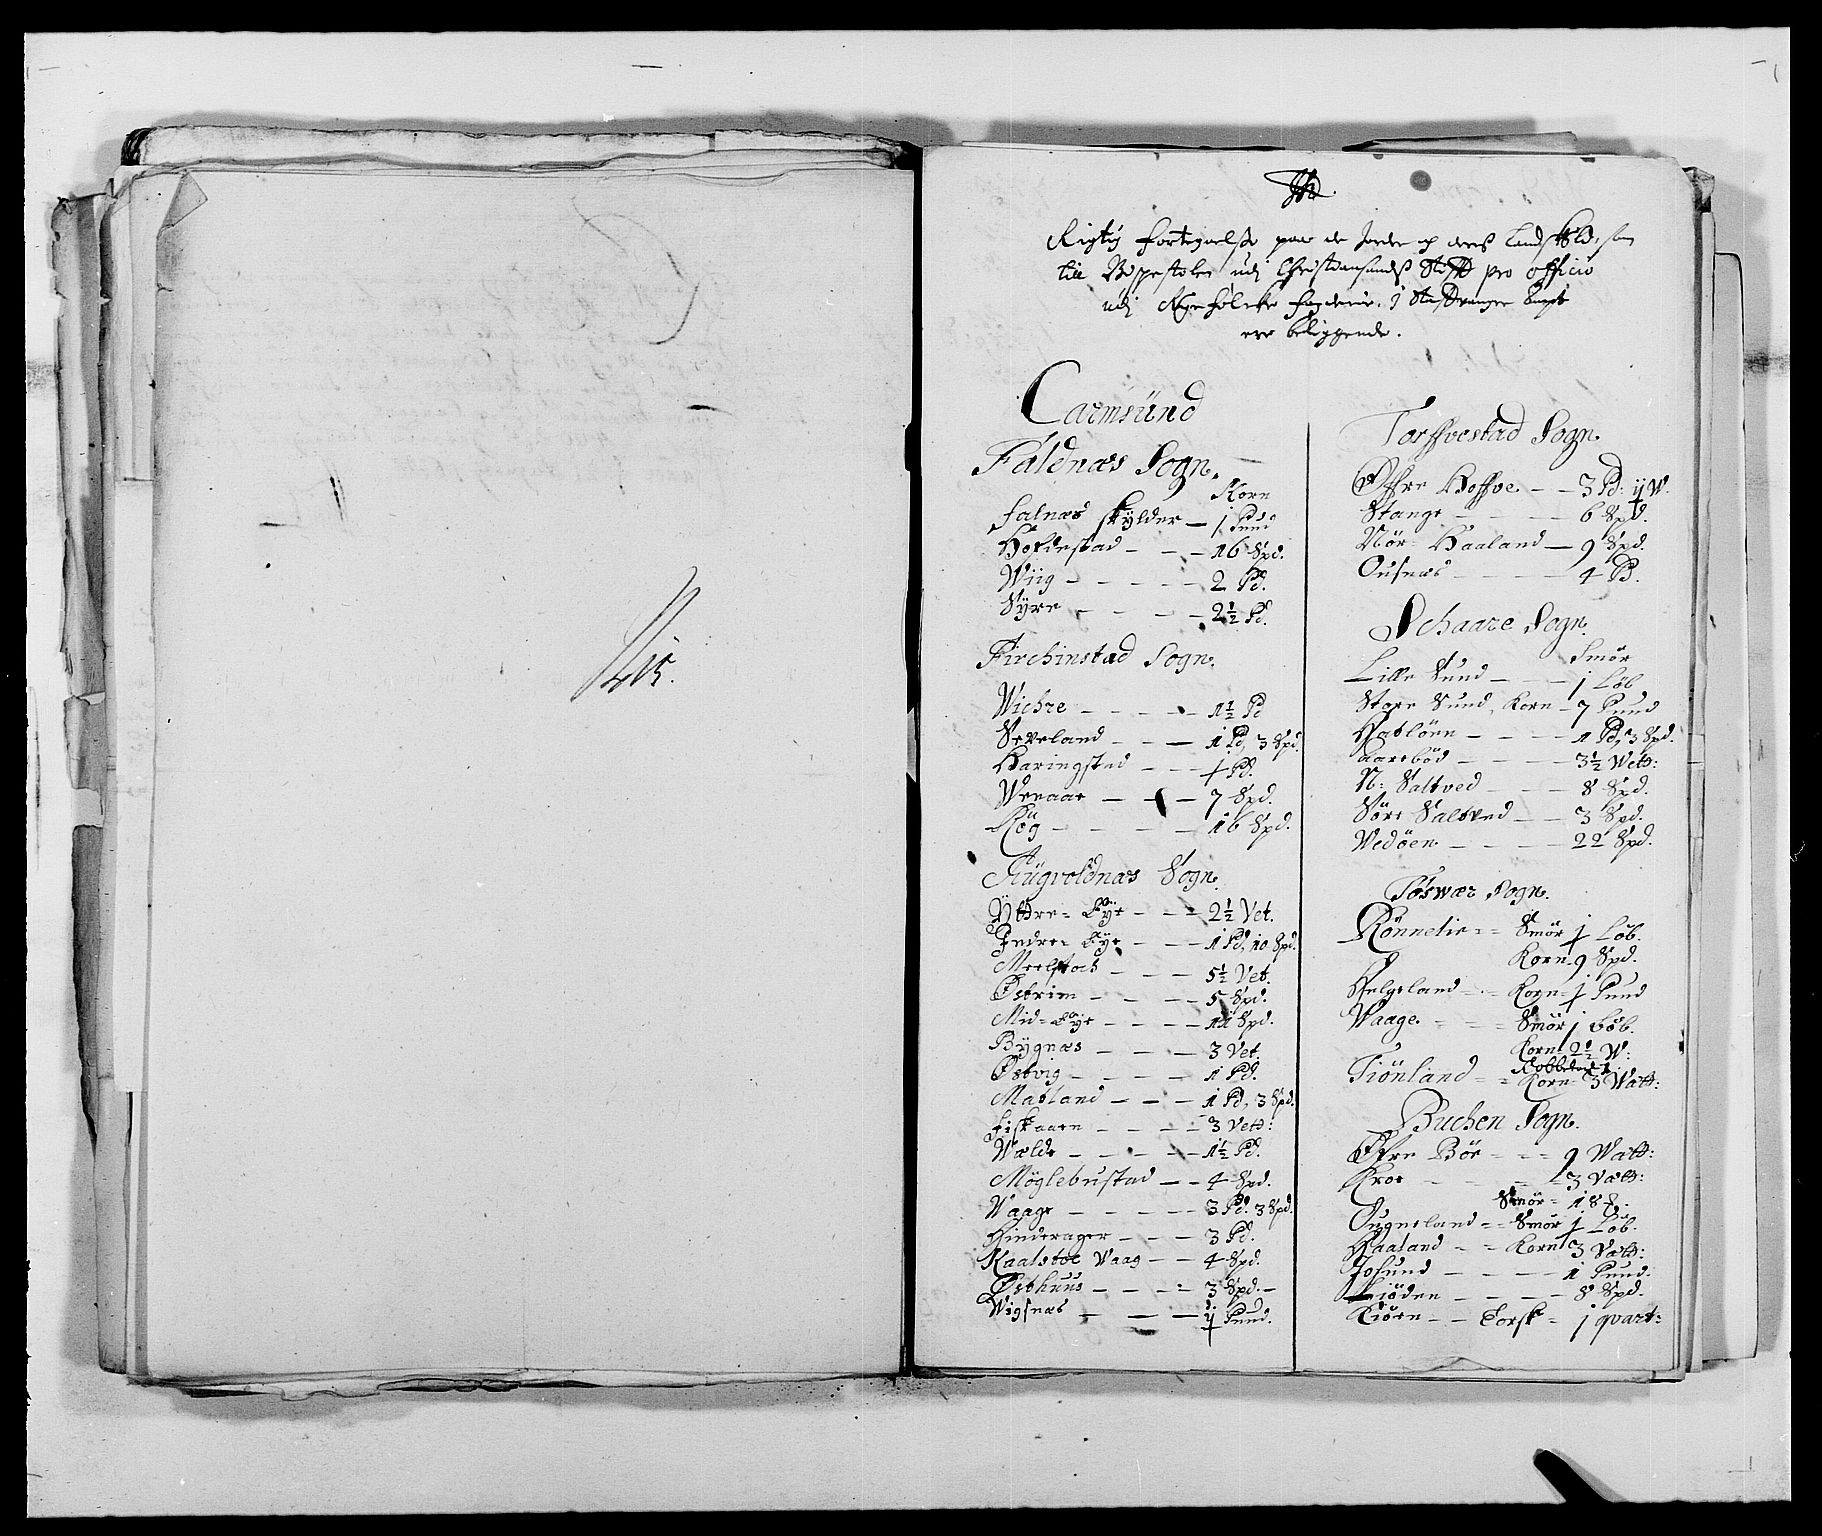 N 15.
Rigtig fortegnelse paa de Jorder og deris Landskÿld, som
till Bispestolen udj Christiansands Stifft pro officio
udj Ryefølcke fogderie, J Staffvanger Ampt
ere beliggende.
Carmsünd
Faldnæs Sogn.
Korn
Falnæs skÿlder — 1 Pund
Hoxdestad - - - 16 Spd.
Wiig - - - - - 2 Pd.
Sÿre - - - - 2½ Pd.
Firchinstad Sogn.
Wichre - - - - 1½ Pd
Seveland - - - 1 Pd, 3 Spd.
Haringsted - - - 1 Pd.
Wenaae - - - 7 Spd.
Køg - - - - - 16 Spd.
Augvoldnæs Sogn.
Ÿttre= Eÿe - - - 2½ Vet.
Indre= Eÿe - - - 1 Pd, 10 Spd.
Meelstad - - - 5½ Vet.
Østrim - - - - 5 Spd.
Mid= Eÿe - - - - 11 Spd.
Bÿgnæs - - - - 3 Vet.
Østvig - - - - - 1 Pd.
Matland - - - 1 Pd, 3 Spd.
Fiskaaen - - - - 3 Vett:
Wælde - - - - - 1½ Pd.
Møglebustad - - 4 Spd.
Waage - - - - - 3 Pd. 3 Spd.
Hinderager - - - 3 Pd.
Kaalstøe Vaag - - 4 Spd.
Østhuus - - - = 3 Spd. -
Wigsnæs - - - ij Pund.
Torffvestad Sogn.
Øffre Hoffve - - 3 Pd: ij W.
Stange - - - - 6 Spd.
Nør= Haaland — 9 Spd.
Ousnæs - - - - 4 Pd.
Schaare Sogn.
Smør
Lille Sund - - - 1 Løb
Store Sund, Korn - 7 Pund
Hatløen - - - - 1 Pd, 3 Spd.
Aarebød - - - - 3½ Wett:
N: Saltved - - - 8 Spd.
Søre Saltved - - 3 Spd.
Wedøen - - - - 22 Spd.
Toswær Sogn.
Rønnevie = = Smør 1 Løb.
Korn 9 Spd.
Helgeland - - Korn = 1 Pund
Waage. - - - Smør 1 Løb.
Korn 2½ W:
Tiønland - = Korn = 3 Watt:
Buchen Sogn.
Øfre Bør - - = 9 Watt:
Kroe - - - - 3 Vatt:
Smør = 18 .
Ougneland - = Smør 1 Løb.
Haaland - = Korn 3 Vatt:
Josund - - - - 1 Pund.
- - - - 8 Spd.
Kiøen - - Torsk = 1 qvart: